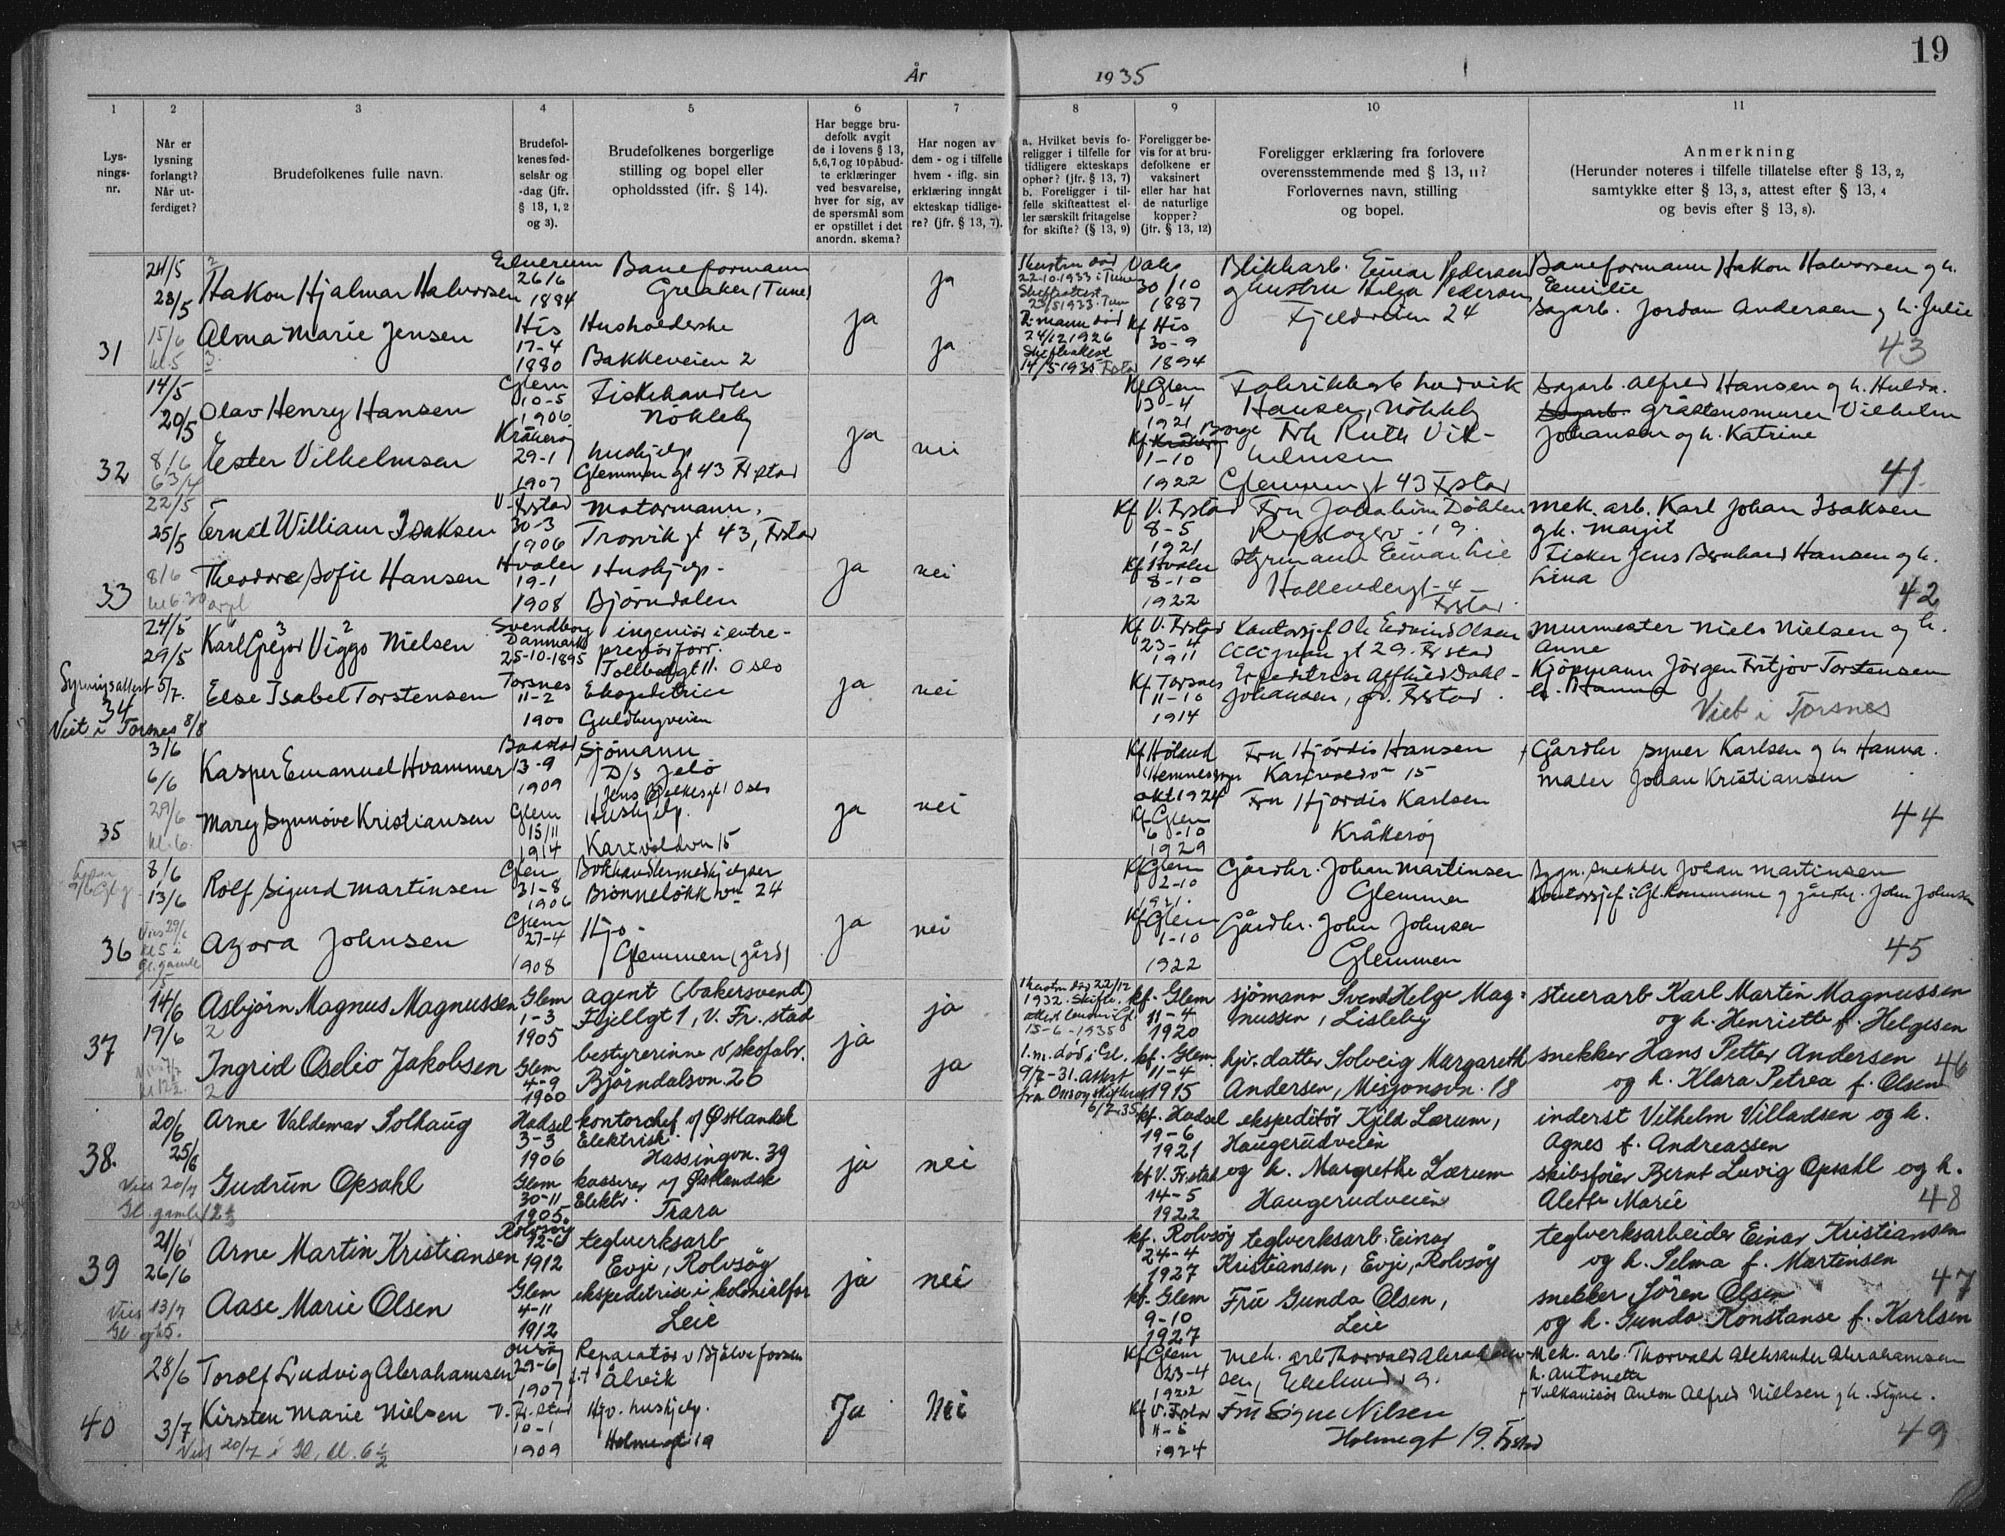 19
År 1935
1 2 3 4 5 6 7 8 9 10 11
Lys-
nings-
nr.
Når er
lysning
forlangt?
Når ut-
ferdiget?
Brudefolkenes fulle navn.
Brudefol-
kenes fød-
selsår og
-dag (jfr.
§ 13, 1, 2
og 3).
Brudefolkenes borgerlige
stilling og bopel eller
opholdssted (jfr. § 14).
Har begge bru-
defolk avgit
de i lovens § 13,
5, 6, 7 og 10 påbud-
te erklæringer
ved besvarelse,
hver for sig, av
de spørsmål som
er opstillet i det
anordn. skema?
Har nogen av
dem - og i tilfelle
hvem - iflg. sin
erklæring inngått
ekteskap tidlige-
re? (jfr. § 13, 7).
a. Hvilket bevis fo-
religger i tilfelle for
tidligere ekteskaps
ophør? (jfr. § 13, 7)
b. Foreligger i til-
felle skifteattest el-
ler særskilt fritagelse
for skifte? (§ 13, 9)
Foreligger be-
vis for at bru-
defolkene er
vaksinert
eller har hat
de naturlige
kopper?
(jfr. § 13, 12)
Foreligger erklæring fra forlovere
overensstemmende med § 13, 11?
Forlovernes navn, stilling
og bopel.
Anmerkning
(Herunder noteres i tilfelle tillatelse efter § 13, 2,
samtykke efter § 13, 3, attest efter § 13, 4
og bevis efter § 13, 8).
31
24/5
28/5
15/6
kl. 5
2
Hakon Hjalmar Halvorsen
Elverum
26/6
1884
Baneformann
Greaker (Tune)
ja
ja
1 hustru død
22-10-1933 i Tune
Skifteattest
30/10
1887
Blikkarb. Einar Pedersen
g hustru Helga Pedersen
Fjeldveien 24
Baneformann Hakon Halvorsen og h.
Emilie
Alma Marie Jensen
3
His
17-4
1880
Husholderske
Bakkeveien 2
ja
1. mann død
24/12 1926
Skifteattest
14/5 1935 Frstad
Kf His
30-9
1894
Sagarb. Jordan Andersen g h. Julie
43
32
14/5
20/5
8/6
6 3/4
Olav Henry Hansen
Glem
10-5
1906
Fiskehandler
Nökleby
ja
nei
Kf Glem
13-4
1921
Fabrikkarb Ludvik
Hansen, Nökleby
Sagarb. Alfred Hansen og h. Hulda.
Ester Vilhelmsen
Kråkerøy
29-1
1907
hushjelp
Glemmen gt 43 Frstad
Kf Borge
1-10
1922
Frk Ruth Vil-
helmsen
Glemmengt 43 Frstad
Sagarb. gråstensmurer Vilhelm
Johansen og h. Katrine
41.
33
22/5
25/5
8/6
kl 6.30
Ernst William Isaksen
V. Frstad
30-3
1906
Motormann.
Trosvik gt 43, Frstad
ja
nei
Kf V. Frstad
8-5
1921
Fru Johakim Döhlen
mek. arb. Karl Johan Isaksen
g h. Margit
Theodora Sofie Hansen
Hvaler
19-1
1908
Hushjelp-
Björndalen
Kf Hvaler
8-10
1922
Styrmann Einar Lie
Hollendergt-4
Frstad.
Fisker Jens Bernhard Hansen og h.
Lina
42
34
24/5
29/5
5/7.
Vict i Torsnes 8/8
3 2
Karl Gregor Viggo Nielsen
Svendborg
Danmark
25-10-1895
ingeniör i entre-
prenörforr.
Tollbodgt 11. Oslo
ja
nei
Kf V. Frstad
23-4
1911
Kontorsjef Ole Edvind Olsen
gt 29. Frstad
Murmester Niels Nielsen og h.
Anne
Else Isabel Torstensen
Torsnes
11-2
1900
Ekspeditrice
Guldbergveien
Kf Torsnes
11-10
1914
Johansen, Frstad.
Kjöpmann Jörgen Fritjov Torstensen
h. Hanna
Viet i Torsnes
35
3/6
6/6
29/6
kl. 6.
Kasper Emanuel Hvammer
Baastad
13-9
1909
Sjömann
D/S Jelö
Oslo
ja
nei
Kf Höland
Hemnes
okt 1924
Fru Hjördis Hansen
Karivoldv 15
Gårdbr Syver Karlsen g h Hanna.
Mary Synnöve Kristiansen
Glem
15/11
1914
Hushjelp.
Karivoldvn 15
Kf Glem
6-10
1929
Fru Hjördis Karlsen
Kråkeröy
maler Johan Kristiansen
44
36
8/6
13/6
Viet 29/6
kl 5 i
Gl. gamle
Rolf Sigurd Martinsen
Glem
31-8
1906
Bokhandlermedhjelper
Brönnelökkvn 24
ja
nei
Kf Glem
2-10
1921.
Gårdbr. Johan Martinsen
Glemmen
Bygn. snekker Johan Martinsen
Azora Johnsen
Glem
27-4
1908
Hjo-
Glemmen (gård)
Kf Glem
1-10
1922
Gårdbr. John Johnsen
Glemmen
Kontorsjef i Gl. Kommune g gårdbr. John Johnsen
45
37
14/6
19/6
Asbjørn Magnus Magnussen
2
Glem
1-3
1905
agent (bakersvend)
Fjellgt 1, V. Fr.stad
ja
ja
1 hustru død 22/12
1932. Skifte-
15-6-1935
kf. Glem
11-4
1920
sjömann Svend Helge Mag-
nussen, Lisleby
stuerarb Karl Martin Magnussen
og h. Henriette f. Helgesen
Ingrid Oselio Jakobsen
2
Glem
4-9
1900
bestyrerinne v/skofabr.
Björndalsvn. 26
ja
1. m. død i Gl.
9/7-31. Attest
fra Onsøy
6/2.35
kf. Glem
11-4
1915
hjv. datter Solveig Margareth
Andersen, Misjonsvn. 18
snekker Hans Petter Andersen
og h. Klara Petrea f. Olsen
46
38.
20/6
25/6
Viet 20/7
Gl. gamle 12 1/2
Arne Valdemar Solhaug
Hadsel
3-3
1906
kontorchef v/ Østlandsk
Elektrisk.
Hassingvn. 39
ja
nei
kf. Hadsel
19-6
1921
ekspeditör Kjeld Lærum,
Haugerudveien
inderst Vilhelm Villadsen og h.
Agnes f. Andreassen
Gudrun Opsahl
Glem
30-11
1905
kasserer v/ Østlandsk
Elektr.
Trara
kf V. Fr.stad
14-5
1922
og h. Margrethe Lærum
Haugerudveien
skibsfører Bernt Luvig Opsahl og h.
Alette Marie
48
39
21/6
26/6
Viet 13/7
Gl. gl kl 5.
Arne Martin Kristiansen
Rolvsöy
12-6
1912
teglverksarb
Evje, Rolvsöy
ja
nei
kf. Rolvsöy
24-4
1927
teglverksarb. Einar
Kristiansen, Evje, Rolvsöy
teglverksarbeider Einar Kristiansen
og h. Selma f. Martinsen
Aase Marie Olsen
Glem
4-11
1912
ekspeditrise i kolonialfor
Leie
kf. Glem
9-10
1927
Fru Gunda Olsen,
Leie
snekker Sören Olsen
og h. Gunda Konstanse f. Karlsen
47
40
28/6
3/7
Torolf Ludvig Abrahamsen
Onsøy
29-6
1907
Reparatör v Bjølvefossen
Ålvik
Ja
Nei
Kf Glem
23-4
1922
mek. arb Thorvald Abraham-
sen,
Mek. arb. Thorvald Aleksander Abrahamsen
h. Antonette
Kirsten Marie Nielsen
V. Fr.stad
10-1
1909
Hjv. hushjelp.
Holmegt 19
Kf V. Frstad
1924
Fru Signe Nilsen
Holmegt 19. Frstad
Vulkanisör Anton Alfred Nielsen g h. Signe.
Viet 20/7 i Gl. kl. 6 1/2
49